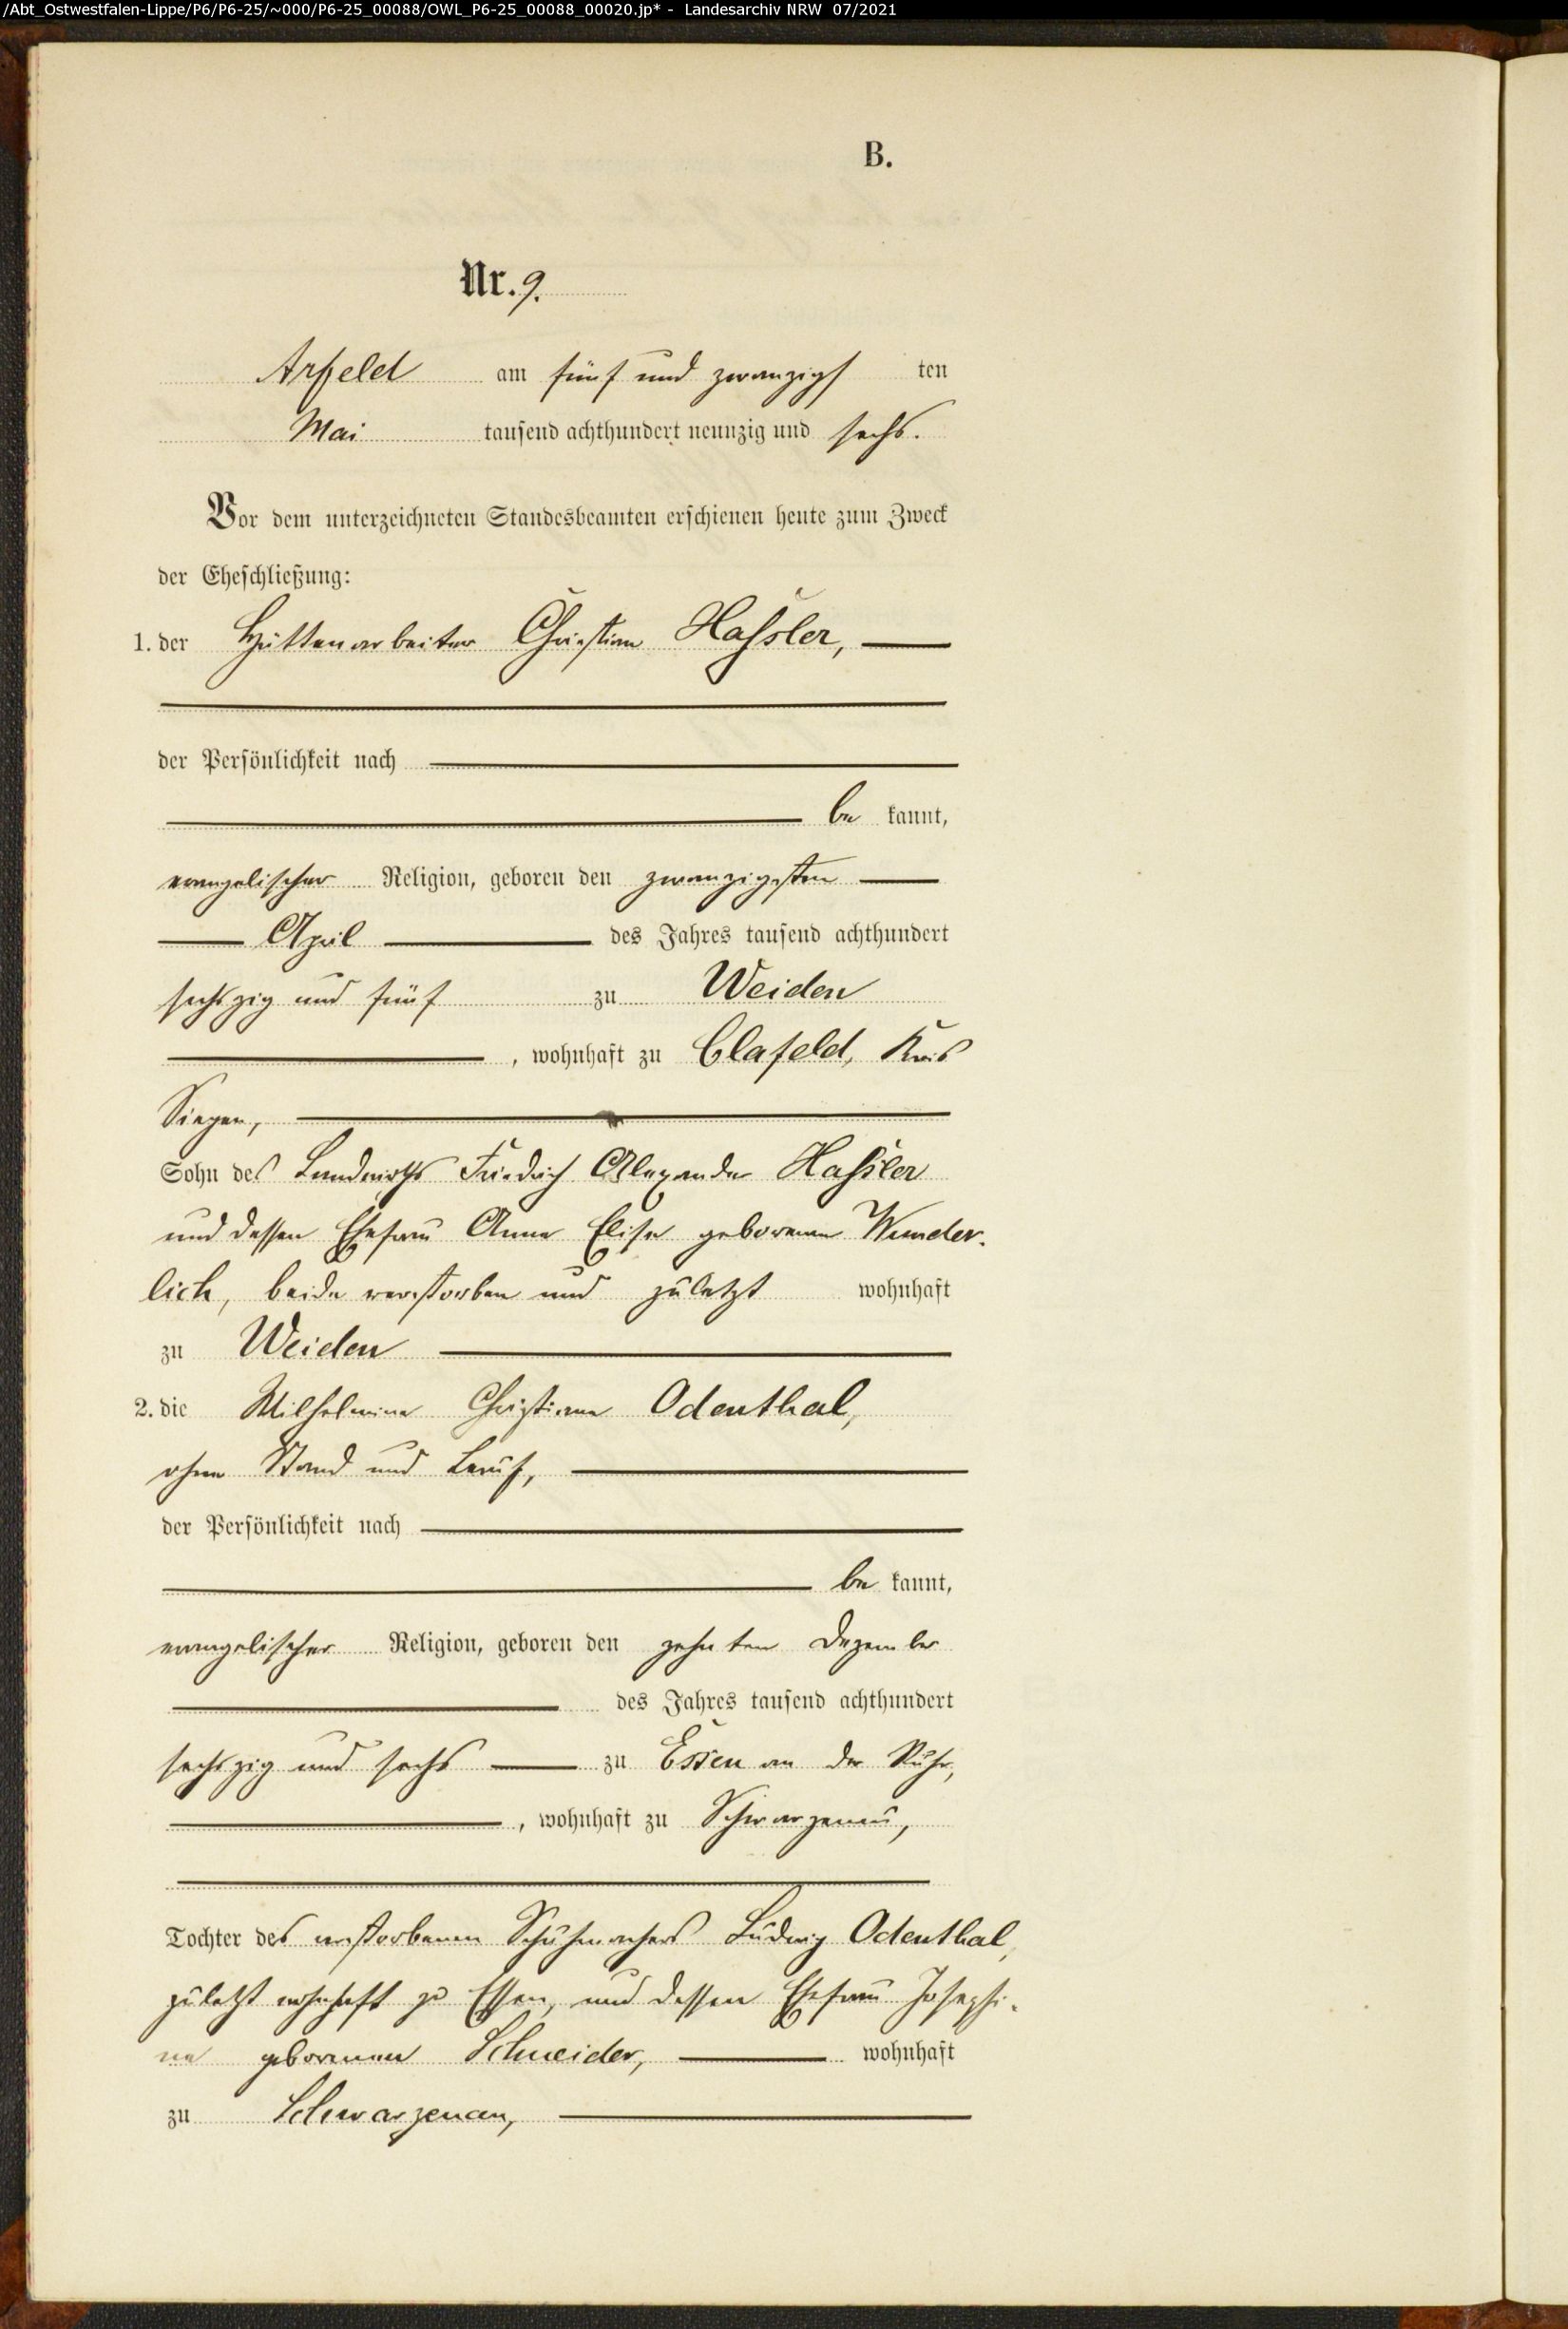 /Abt_Ostwestfalen-Lippe/P6/P6-25/~000/P6-25_00088/OWL_P6-25_00088_00020.jp* - Landesarchiv NRW 07/2021
B.
Nr. 9.
Arfeld am fünf und zwanzigs ten
Mai tausend achthundert neunzig und sechs.
Vor dem unterzeichneten Standesbeamten erschienen heute zum Zweck
der Eheschließung:
1. der Hüttenarbeiter Christian Hassler,
der Persönlichkeit nach
be kannt,
evangelischer Religion, geboren den zwanzigsten
April des Jahres tausend achthundert
sechszig und fünf zu Weiden
, wohnhaft zu Clafeld, Kreis
Siegen,
Sohn des Landwirths Friedrich Alexander Hassler
und dessen Ehefrau Anna Elise geborenen Wunder-
lich, beide verstorben und zuletzt wohnhaft
zu Weiden
2. die Wilhelmine Christiane Odenthal,
ohne Stand und Beruf,
der Persönlichkeit nach
be kannt,
evangelischer Religion, geboren den zehnten Dezember
des Jahres tausend achthundert
sechszig und sechs zu Essen an der Ruhr,
, wohnhaft zu Schwarzenau,
Tochter des verstorbenen Schuhmachers Ludwig Odenthal,
zuletzt wohnhaft zu Essen, und dessen Ehefrau Josephi-
ne geborenen Schneider, wohnhaft
zu Schwarzenau,